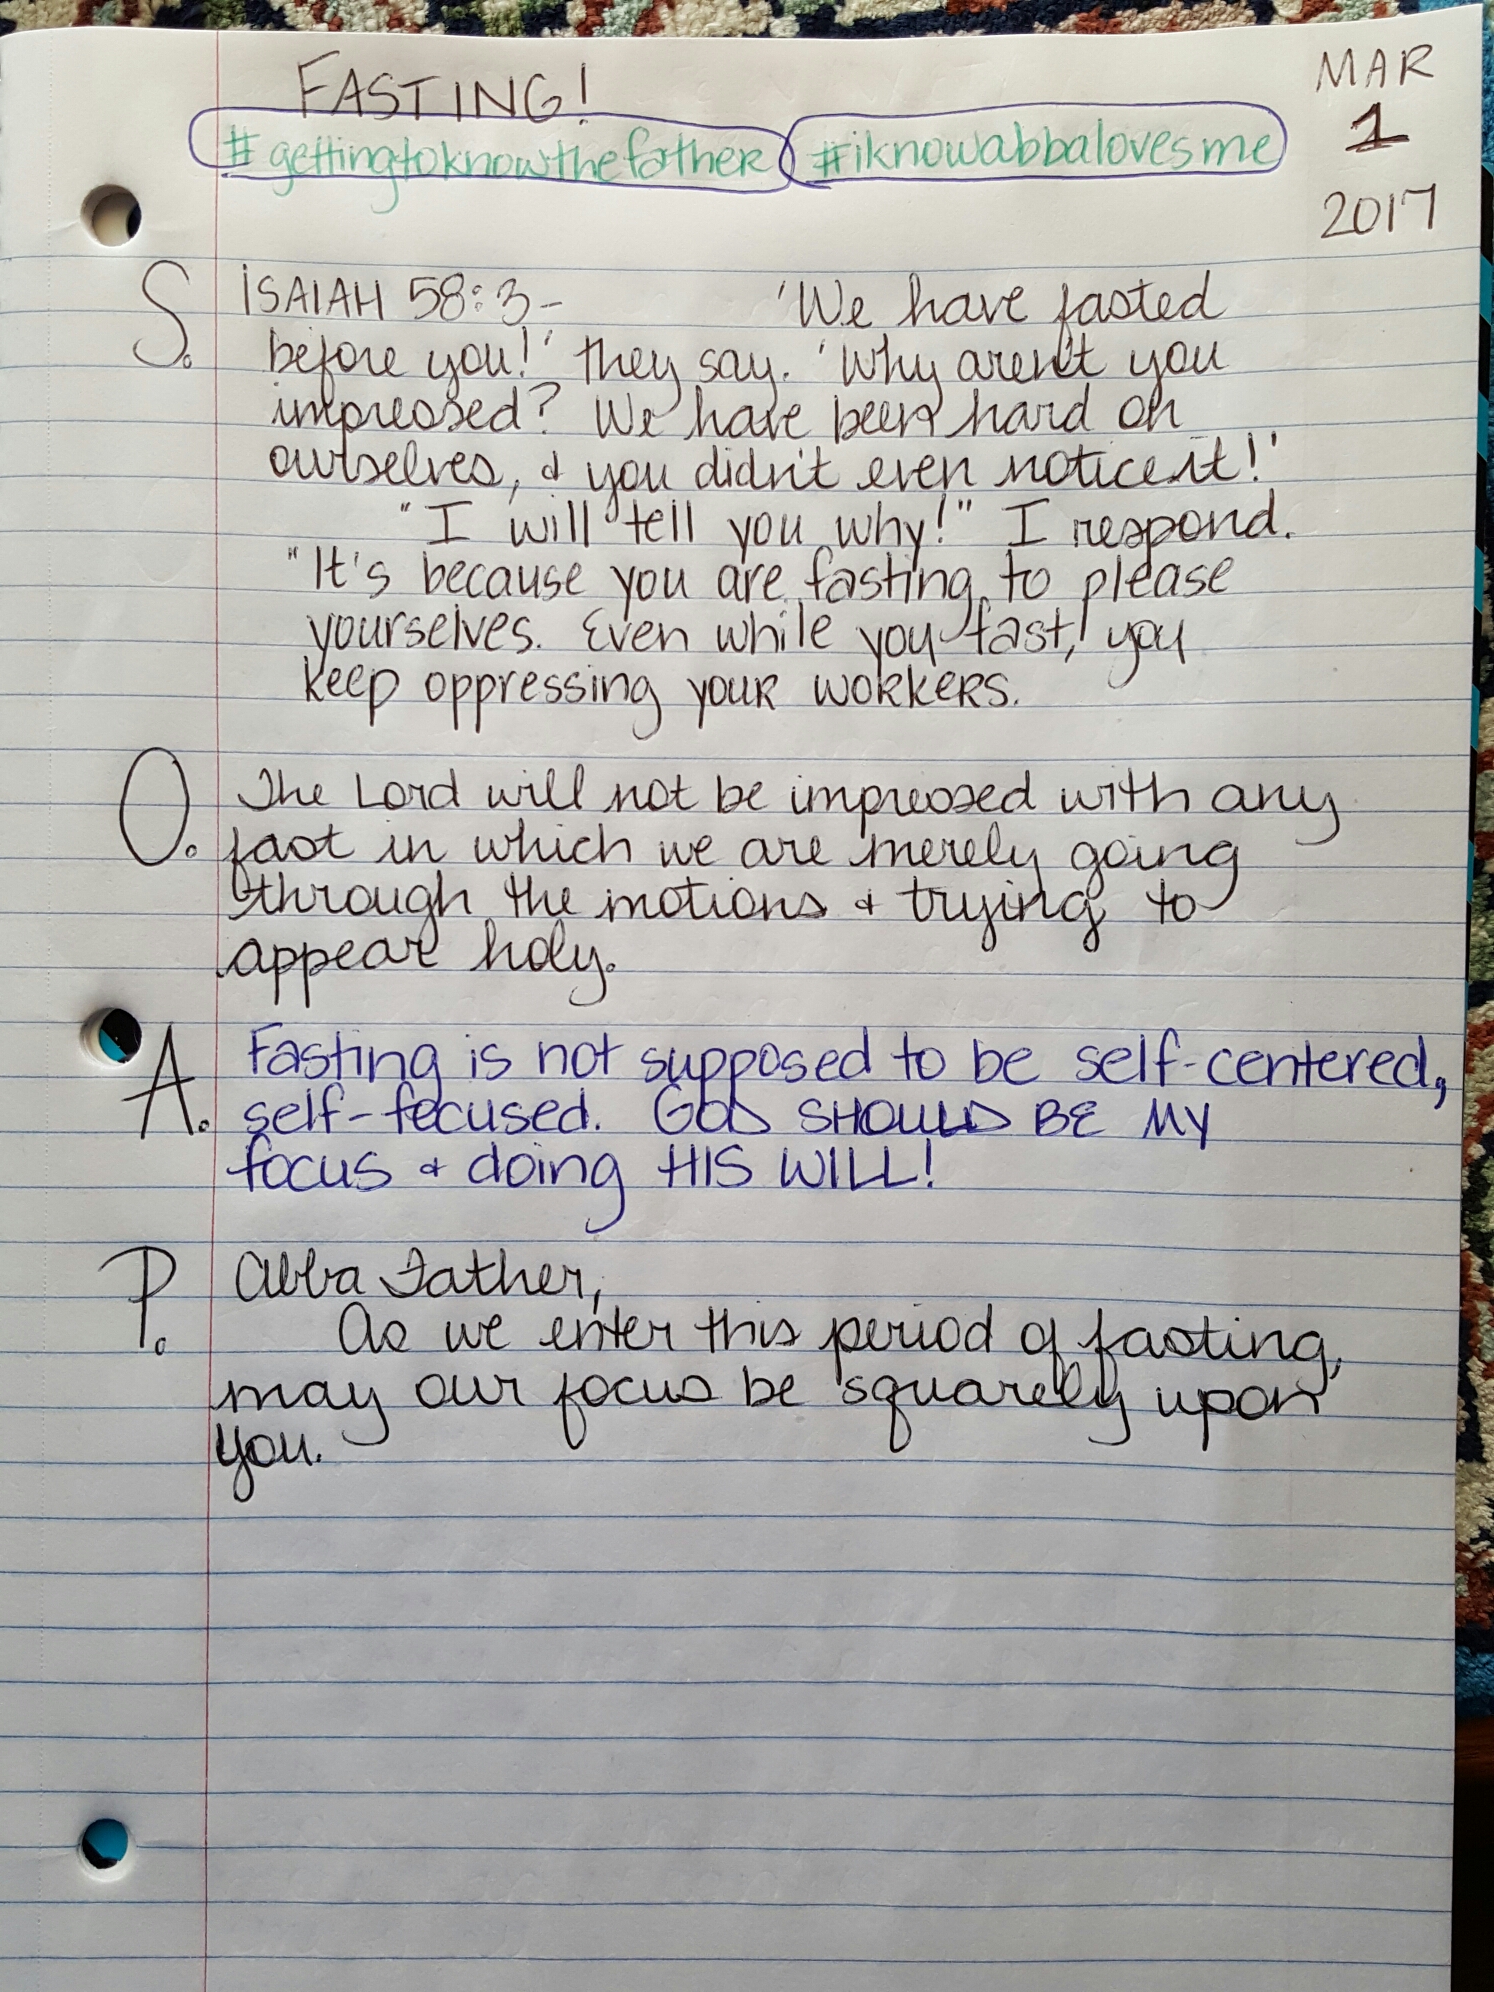 FASTING!
MAR
1
2017
#gettingtoknowthefather #iknowabbalovesme
S. ISAIAH 58:3- 'We have fasted
before you!' they say. 'Why aren't you
impressed? We have been hard on
ourselves, & you didn't even notice it!'
"I will tell you why!" I respond.
"It's because you are fasting to please
yourselves. Even while you fast, you
keep oppressing your workers.
O. The Lord will not be impressed with any
fast in which we are merely going
through the motions & trying to
appear holy.
A. Fasting is not supposed to be self-centered,
self-focused. GOD SHOULD BE MY
focus & doing HIS WILL!
P. Abba Father,
As we enter this period of fasting,
may our focus be squarely upon
you.